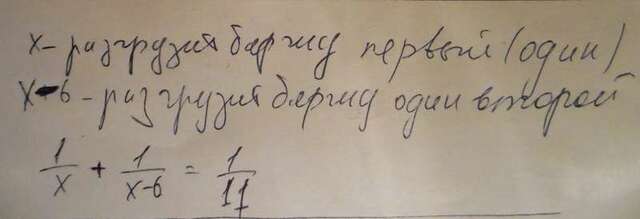 x - разгрузит баржу первый (один)
x-6 - разгрузит баржу один второй
1/x + 1/x-6 = 1/11